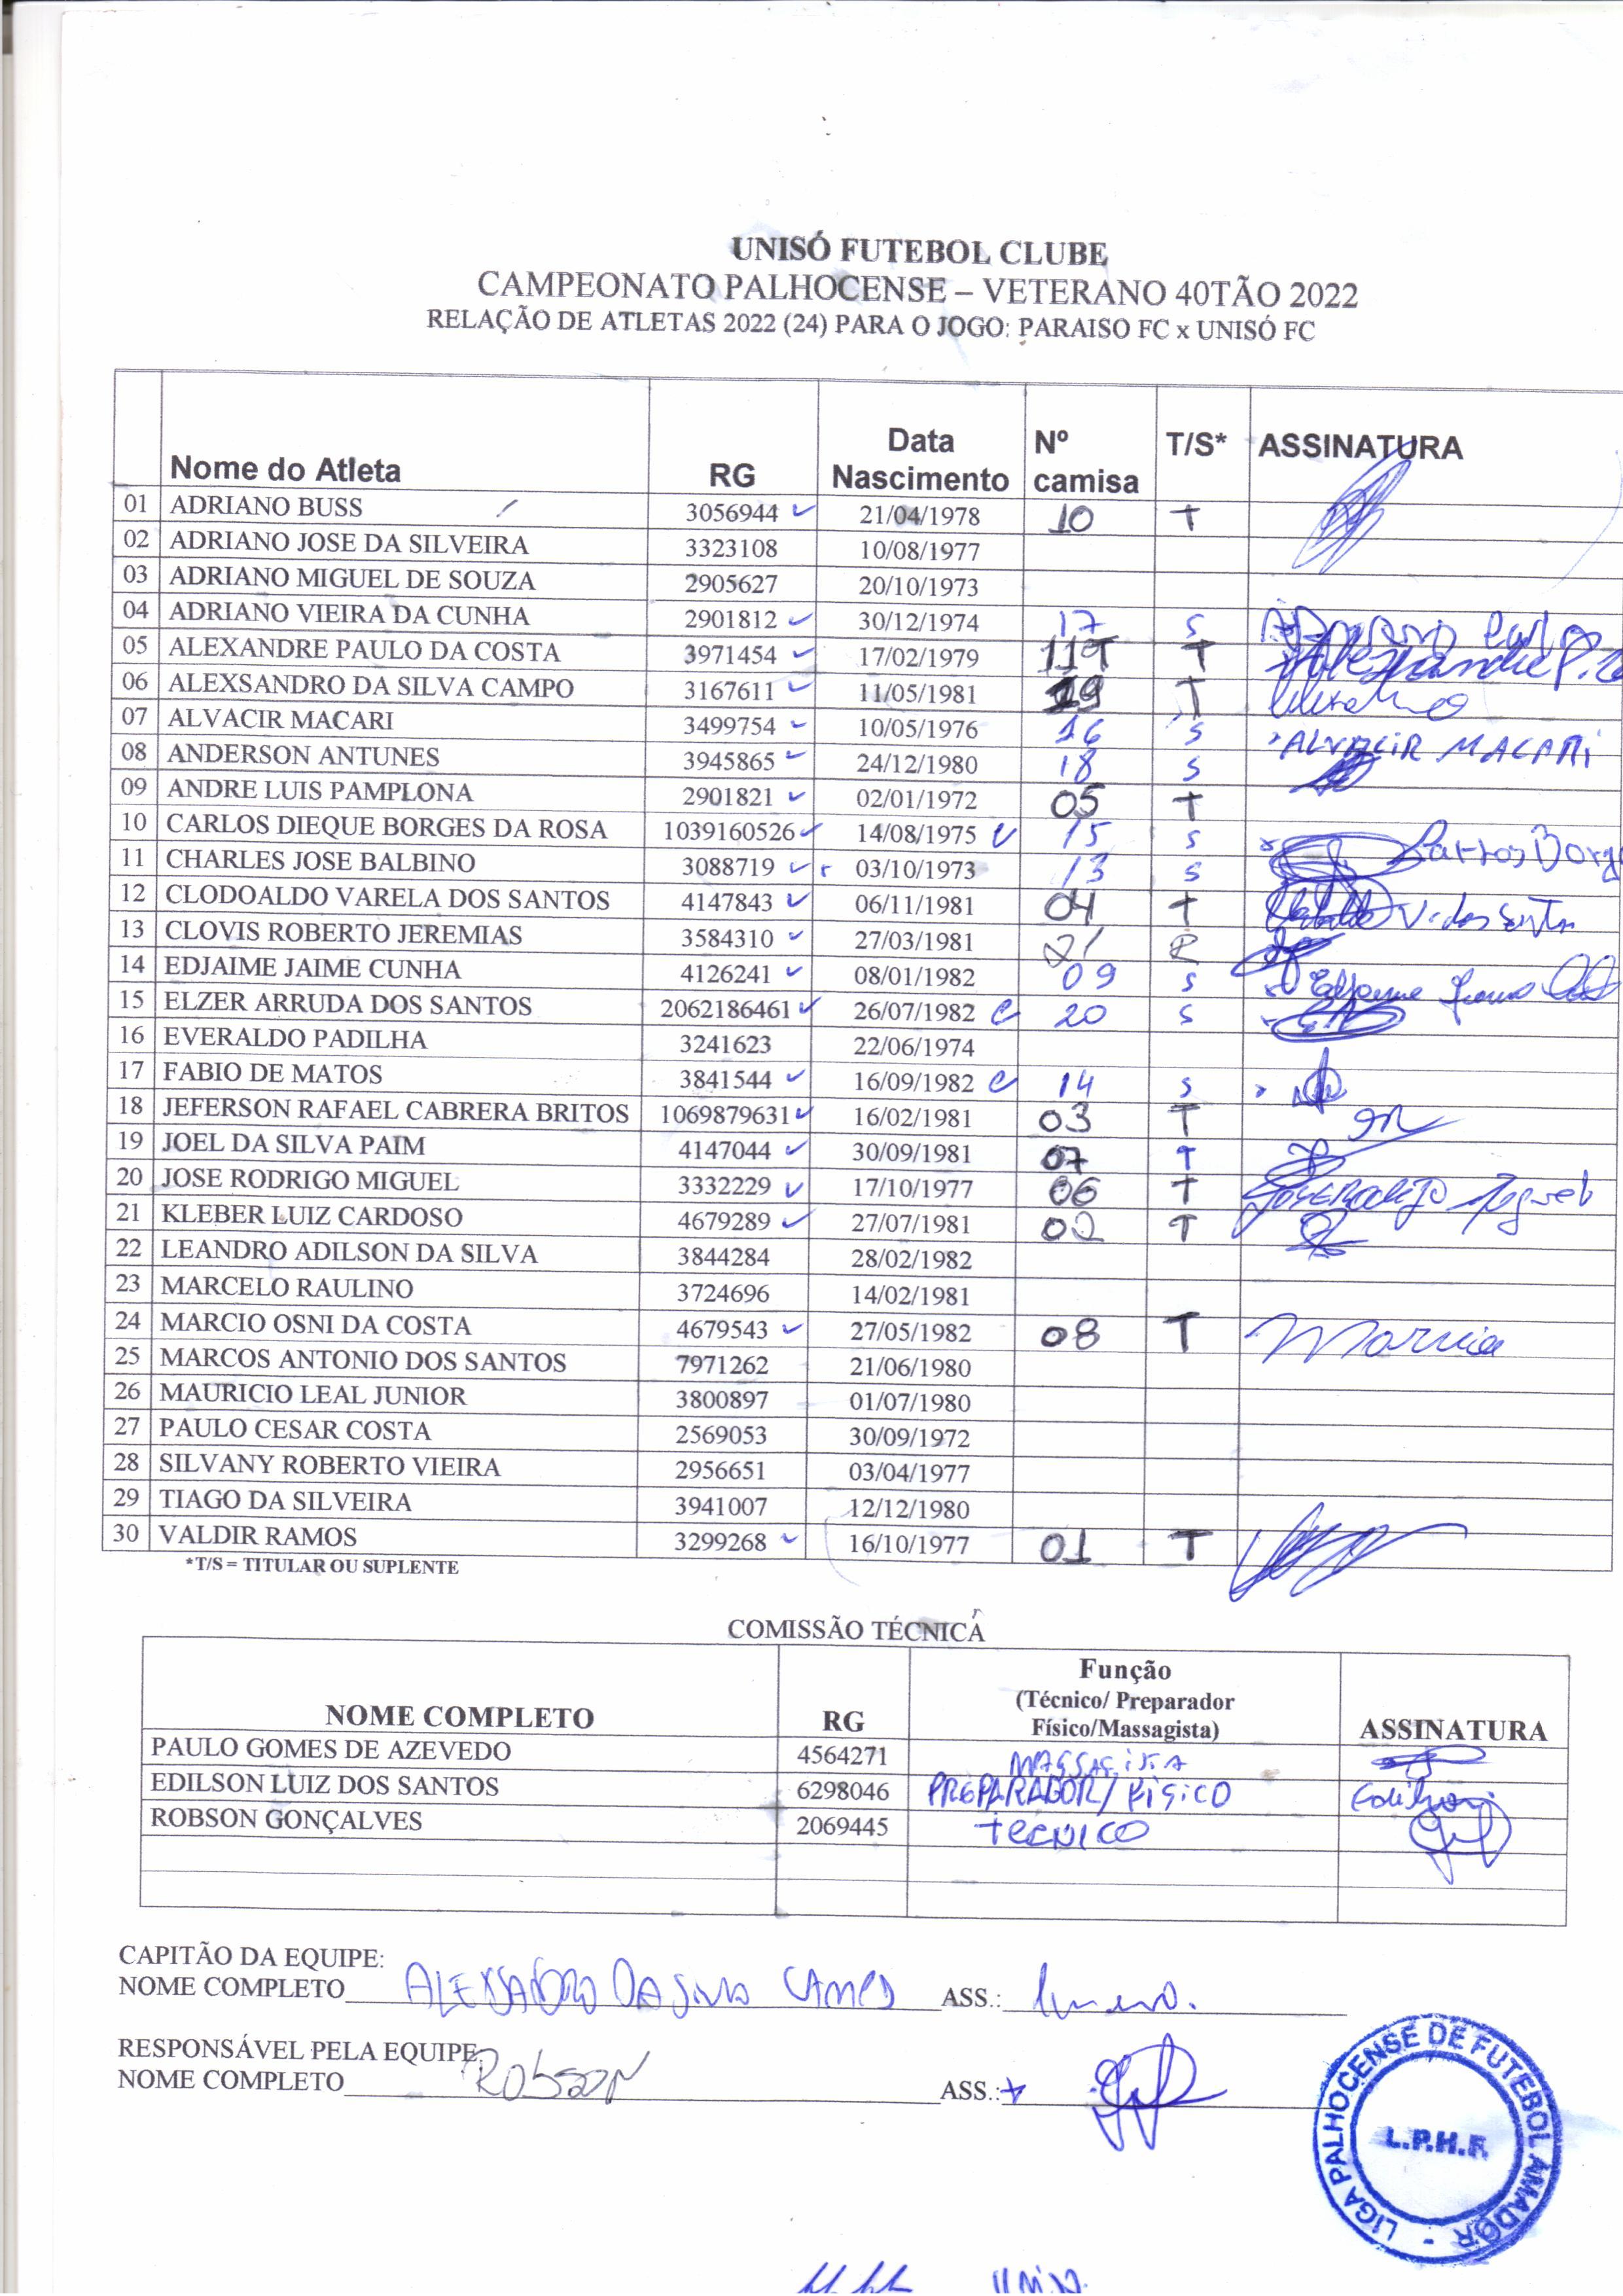 UNISÓ FUTEBOL CLUBE
CAMPEONATO PALHOCENSE – VETERANO 40TÃO 2022
RELAÇÃO DE ATLETAS 2022 (24) PARA O JOGO: PARAISO FC x UNISÓ FC
Nome do Atleta RG Data Nascimento Nº camisa T/S* ASSINATURA
01 ADRIANO BUSS 3056944 21/04/1978 10 T
02 ADRIANO JOSE DA SILVEIRA 3323108 10/08/1977
03 ADRIANO MIGUEL DE SOUZA 2905627 20/10/1973
04 ADRIANO VIEIRA DA CUNHA 2901812 30/12/1974 17 S
05 ALEXANDRE PAULO DA COSTA 3971454 17/02/1979 T Alexandre P.
06 ALEXSANDRO DA SILVA CAMPO 3167611 11/05/1981 T
07 ALVACIR MACARI 3499754 10/05/1976 16 S ALVACIR MACARi
08 ANDERSON ANTUNES 3945865 24/12/1980 18 S
09 ANDRE LUIS PAMPLONA 2901821 02/01/1972 05 T
10 CARLOS DIEQUE BORGES DA ROSA 1039160526 14/08/1975 15 S Carlos Borg
11 CHARLES JOSE BALBINO 3088719 03/10/1973 13 S
12 CLODOALDO VARELA DOS SANTOS 4147843 06/11/1981 04 T
13 CLOVIS ROBERTO JEREMIAS 3584310 27/03/1981 21 R
14 EDJAIME JAIME CUNHA 4126241 08/01/1982 09 S
15 ELZER ARRUDA DOS SANTOS 2062186461 26/07/1982 C 20 S
16 EVERALDO PADILHA 3241623 22/06/1974
17 FABIO DE MATOS 3841544 16/09/1982 C 14 S
18 JEFERSON RAFAEL CABRERA BRITOS 1069879631 16/02/1981 03 T
19 JOEL DA SILVA PAIM 4147044 30/09/1981 07 T
20 JOSE RODRIGO MIGUEL 3332229 17/10/1977 06 T Jose Rodrigo Miguel
21 KLEBER LUIZ CARDOSO 4679289 27/07/1981 02 T
22 LEANDRO ADILSON DA SILVA 3844284 28/02/1982
23 MARCELO RAULINO 3724696 14/02/1981
24 MARCIO OSNI DA COSTA 4679543 27/05/1982 08 T Marcio
25 MARCOS ANTONIO DOS SANTOS 7971262 21/06/1980
26 MAURICIO LEAL JUNIOR 3800897 01/07/1980
27 PAULO CESAR COSTA 2569053 30/09/1972
28 SILVANY ROBERTO VIEIRA 2956651 03/04/1977
29 TIAGO DA SILVEIRA 3941007 12/12/1980
30 VALDIR RAMOS 3299268 16/10/1977 01 T
*T/S = TITULAR OU SUPLENTE
COMISSÃO TÉCNICA
NOME COMPLETO RG Função (Técnico/ Preparador Físico/Massagista) ASSINATURA
PAULO GOMES DE AZEVEDO 4564271 MASSAGISTA
EDILSON LUIZ DOS SANTOS 6298046 PREPARADOR/ FíSiCO Edilson
ROBSON GONÇALVES 2069445 TECNICO
CAPITÃO DA EQUIPE:
NOME COMPLETO ALEXSANDRO DA Silva CAMPO ASS.:
RESPONSÁVEL PELA EQUIPE:
NOME COMPLETO Robson ASS.:
LIGA PALHOCENSE DE FUTEBOL AMADOR -
L.P.H.F.